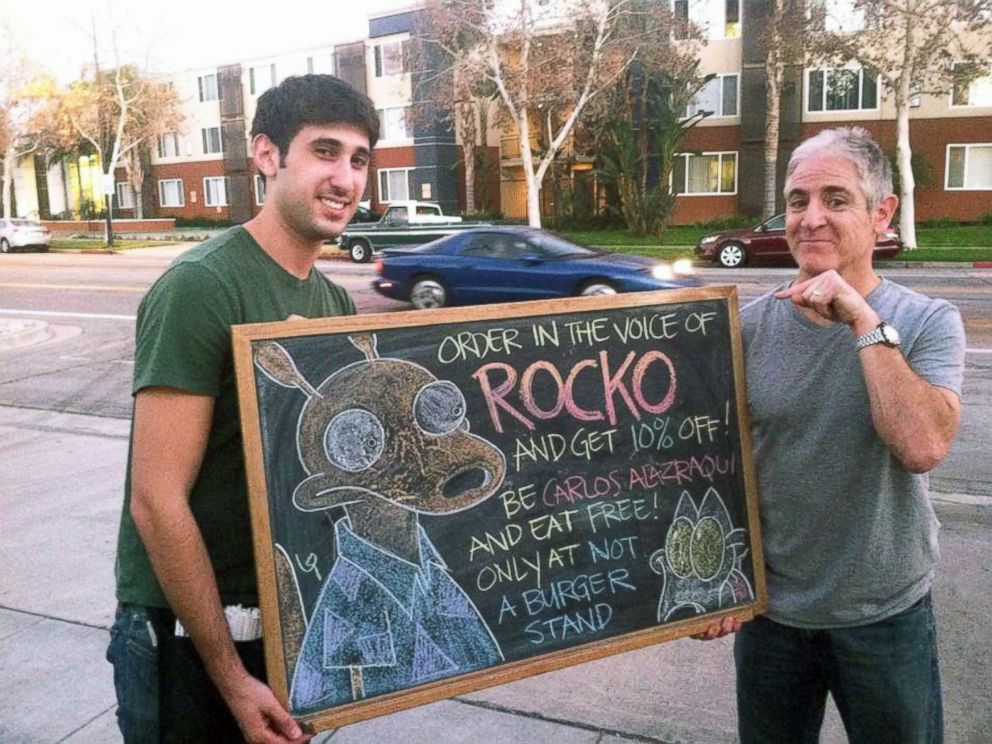 ORDER IN THE VOICE OF
ROCKO
AND GET 10% OFF!
BE CARLOS ALAZRAQUI
AND EAT FREE!
ONLY AT NOT
A BURGER
STAND
LQ